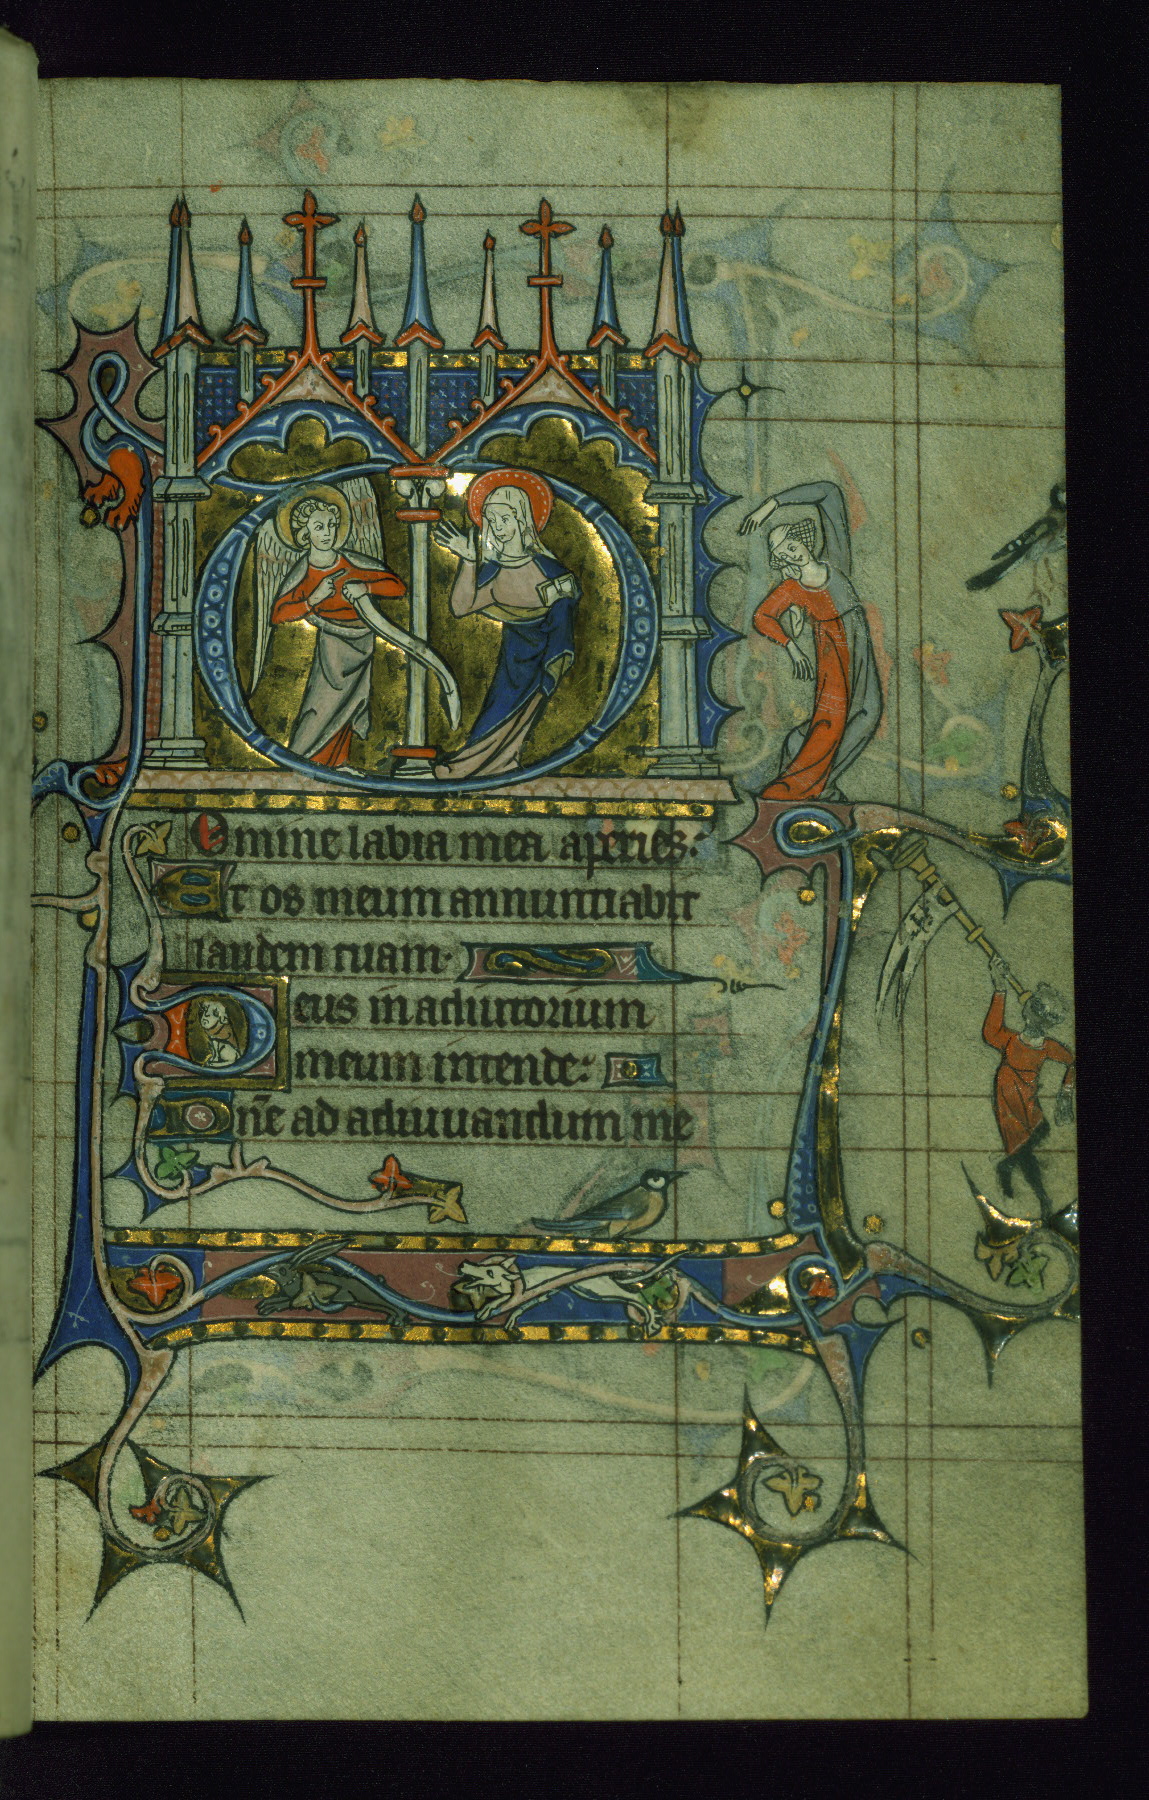 Omine labia mea aperies:
Et os meum annuntiabit
laudem tuam.
Deus in adiutorium
meum intende:
Dn̄e ad adiuuandum me